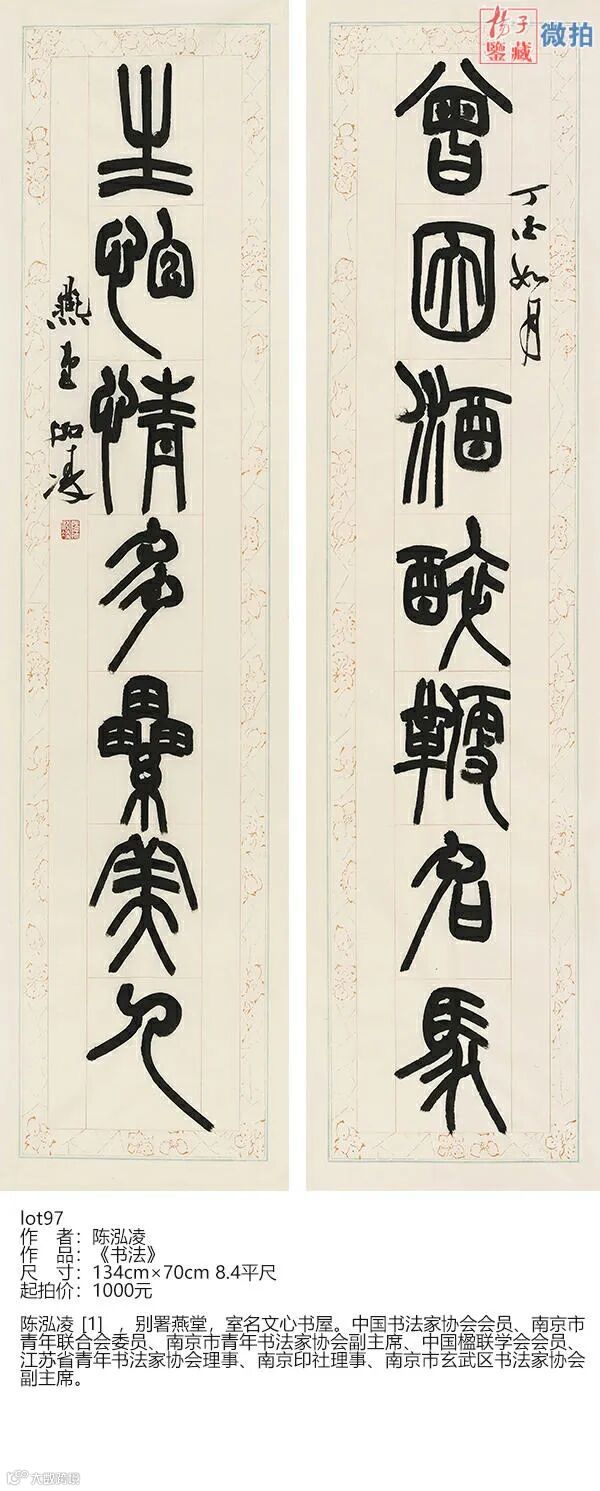 揚子
鑒藏
微拍
曾因酒醉鞭名馬
丁酉如月
生怕情多纍美人
燕堂泓凌
lot97
作　者：陈泓凌
作　品：《书法》
尺　寸：134cm×70cm 8.4平尺
起拍价：1000元
陈泓凌 [1] ，别署燕堂，室名文心书屋。中国书法家协会会员、南京市
青年联合会委员、南京市青年书法家协会副主席、中国楹联学会会员、
江苏省青年书法家协会理事、南京印社理事、南京市玄武区书法家协会
副主席。
大数跨境